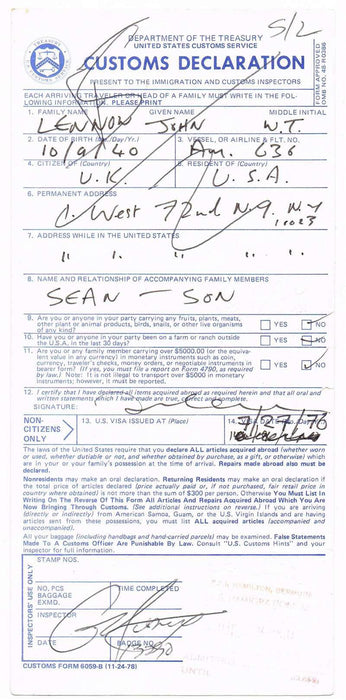 5/2
DEPARTMENT OF THE TREASURY
UNITED STATES CUSTOMS SERVICE
CUSTOMS DECLARATION
PRESENT TO THE IMMIGRATION AND CUSTOMS INSPECTORS
FORM APPROVED
OMB NO. 48-R0386
EACH ARRIVING TRAVELER OR HEAD OF A FAMILY MUST WRITE IN THE FOL-
LOWING INFORMATION. PLEASE PRINT
1. FAMILY NAME GIVEN NAME MIDDLE INITIAL
LENNON JOHN W.T.
2. DATE OF BIRTH (Mo./Day/Yr.) 3. VESSEL, OR AIRLINE & FLT. NO.
10/9/40 Am. 636
4. CITIZEN OF (Country) 5. RESIDENT OF (Country)
U.K. U.S.A.
6. PERMANENT ADDRESS
1. West 72nd N.Y. NY
10023
7. ADDRESS WHILE IN THE UNITED STATES
" " " " "
8. NAME AND RELATIONSHIP OF ACCOMPANYING FAMILY MEMBERS
SEAN – SON
9. Are you or anyone in your party carrying any fruits, plants, meats,
other plant or animal products, birds, snails, or other live organisms
of any kind? YES NO
10. Have you or anyone in your party been on a farm or ranch outside
the U.S.A. in the last 30 days? YES NO
11. Are you or any family member carrying over $5000.00 (or the equiva-
lent value in any currency) in monetary instruments such as coin,
currency, traveler's checks, money orders, or negotiable instruments in
bearer form? (If yes, you must file a report on Form 4790, as required
by law.) Note: It is not illegal to transport over $5000 in monetary
instruments; however, it must be reported. YES NO
12. I certify that I have declared all items acquired abroad as required herein and that all oral and
written statements which I have made are true, correct and complete.
SIGNATURE:
NON-
CITIZENS
ONLY
13. U.S. VISA ISSUED AT (Place)
The laws of the United States require that you declare ALL articles acquired abroad (whether worn
or used, whether dutiable or not, and whether obtained by purchase, as a gift, or otherwise) which
are in your or your family's possession at the time of arrival. Repairs made abroad also must be
declared.
Nonresidents may make an oral declaration. Returning Residents may make an oral declaration if
the total price of articles declared (price paid or, if not purchased, fair retail price in
country where obtained) is not more than the sum of $300 per person. Otherwise You Must List In
Writing On the Reverse Of This Form All Articles And Repairs Acquired Abroad Which You Are
Now Bringing Through Customs. (See additional instructions on reverse.) If you are arriving
(directly or indirectly) from American Samoa, Guam, or the U.S. Virgin Islands and are having
articles sent from these possessions, you must list ALL articles acquired (accompanied and
unaccompanied).
All your baggage (including handbags and hand-carried parcels) may be examined. False Statements
Made To a Customs Officer Are Punishable By Law. Consult "U.S. Customs Hints" and your
inspector for full information.
INSPECTORS' USE ONLY
STAMP NOS.
NO. PCS TIME COMPLETED
BAGGAGE
EXMD.
INSPECTOR
DATE BADGE NO.
CUSTOMS FORM 6059-B (11-24-78)
UNTIL